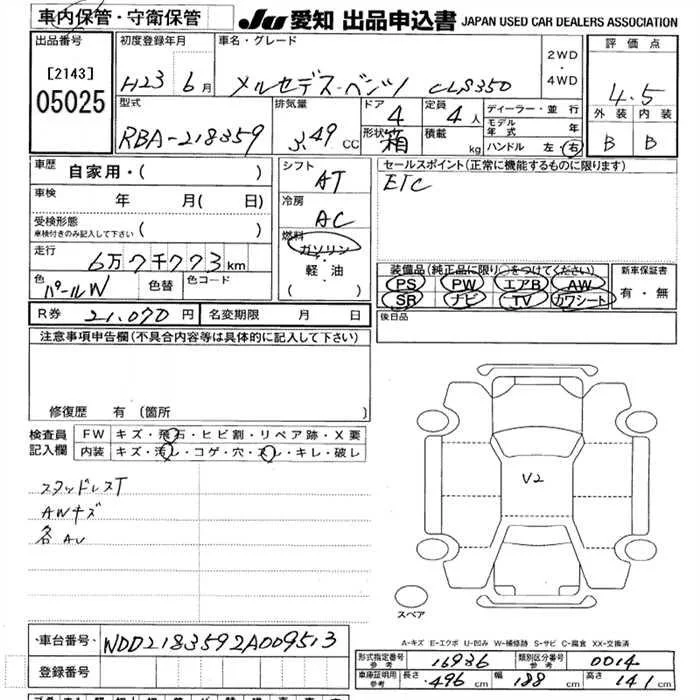 車内保管・守衛保管
JU 愛知 出品申込書 JAPAN USED CAR DEALERS ASSOCIATION
出品番号
[2143]
05025
初度登録年月
H23 6月
車名・グレード
メルセデス・ベンツ CLS350
2WD
・
4WD
評価点
4.5
外装 内装
B B
型式
RBA-218359
排気量
3.49 CC
ドア
4
形状 箱
定員
4人
積載
kg
ディーラー・並行
モデル年式 年
ハンドル 左・右
車歴 自家用・( )
車検 年 月(日)
受検形態
車検付きのみ記入して下さい ( )
走行 6万7千773km
色 パールW 色替 色コード
R券 21,070円 名変期限 月 日
シフト
AT
冷房
AC
燃料
ガソリン
・
軽・油
・
( )
セールスポイント(正常に機能するものに限ります)
ETC
装備品(純正品に限り○をつけてください)
PS PW エアB AW
SR ナビ TV カワシート
新車保証書
有・無
後日品
注意事項申告欄(不具合内容等は具体的に記入して下さい)
修復歴 有(箇所 )
検査員記入欄
FW キズ・飛石・ヒビ割・リペア跡・X要
内装 キズ・汚レ・コゲ・穴・スレ・キレ・破レ
スタッドレスT
AWキズ
各AU
V2
スペア
A-キズ E-エクボ U-凹み W-補修跡 S-サビ C-腐食 XX-交換済
車台番号 WDD2183592A009513
登録番号
形式指定番号 参考 16936 類別区分番号 参考 0014
車庫証明用 参考 長さ 496cm 幅 188cm 高さ 141cm